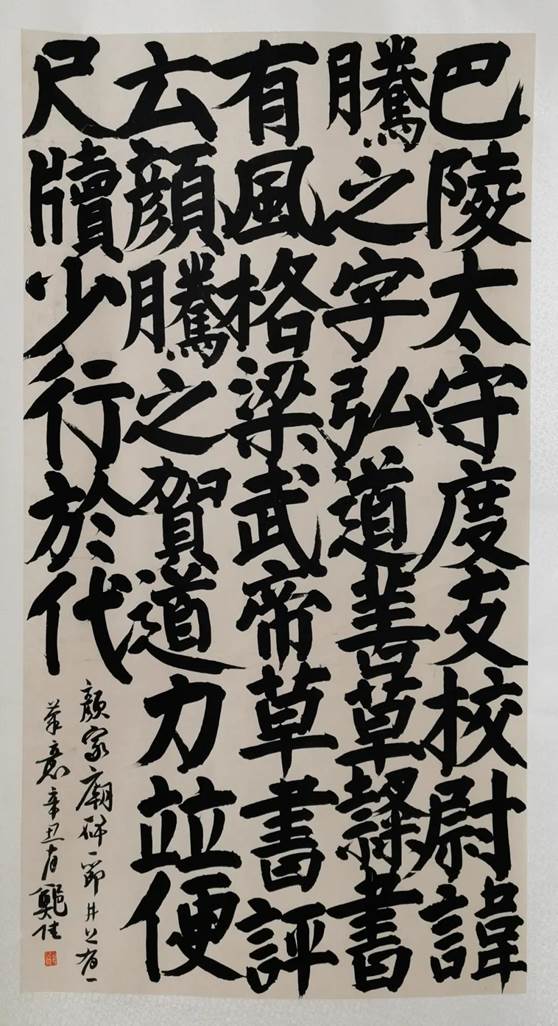 巴陵太守度支校尉諱
騰之字弘道善草隸書
有風格梁武帝草書評
云顏騰之賀道力並便
尺牘少行於代
顏家廟碑一節
筆意辛丑有